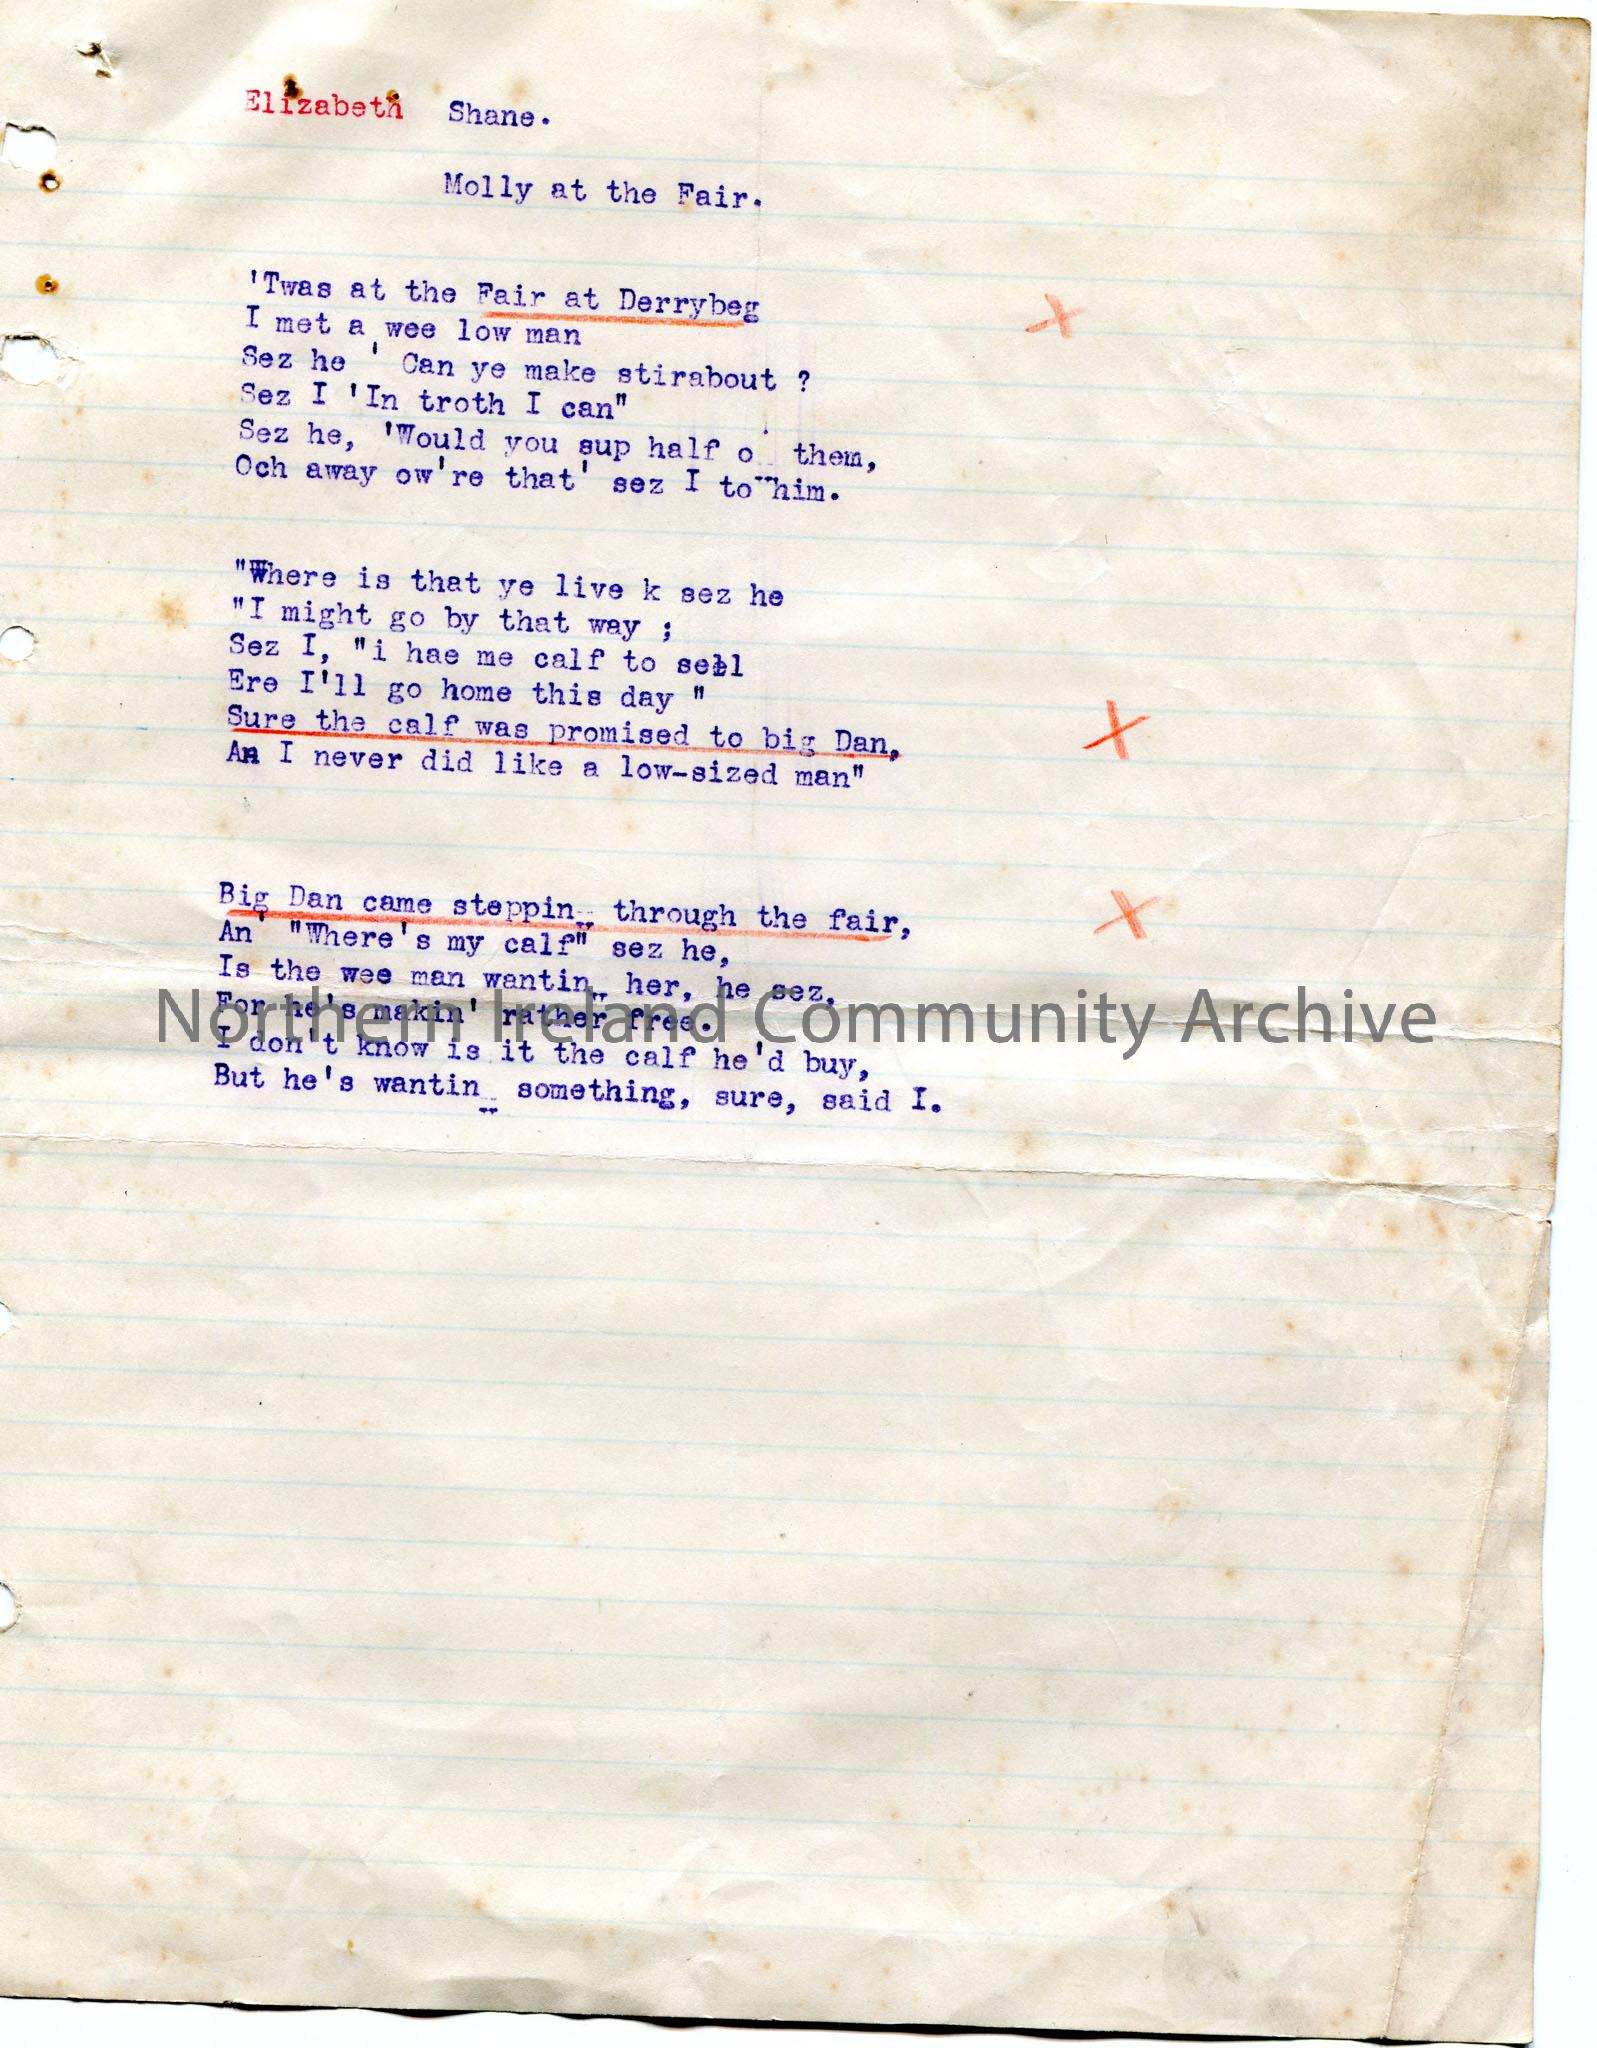 Elizabeth Shane.
Molly at the Fair.
'Twas at the Fair at Derrybeg
I met a wee low man
Sez he ' Can ye make stirabout ?
Sez I 'In troth I can"
Sez he, 'Would you sup half o' them,
Och away ow're that' sez I to him.
"Where is that ye live k sez he
"I might go by that way ;
Sez I, "i hae me calf to sell
Ere I'll go home this day "
Sure the calf was promised to big Dan,
An I never did like a low-sized man"
Big Dan came steppin through the fair,
An' "Where's my calf" sez he,
Is the wee man wantin her, he sez,
For he's makin' rather free.
I don't know is it the calf he'd buy,
But he's wantin something, sure, said I.
Northern Ireland Community Archive